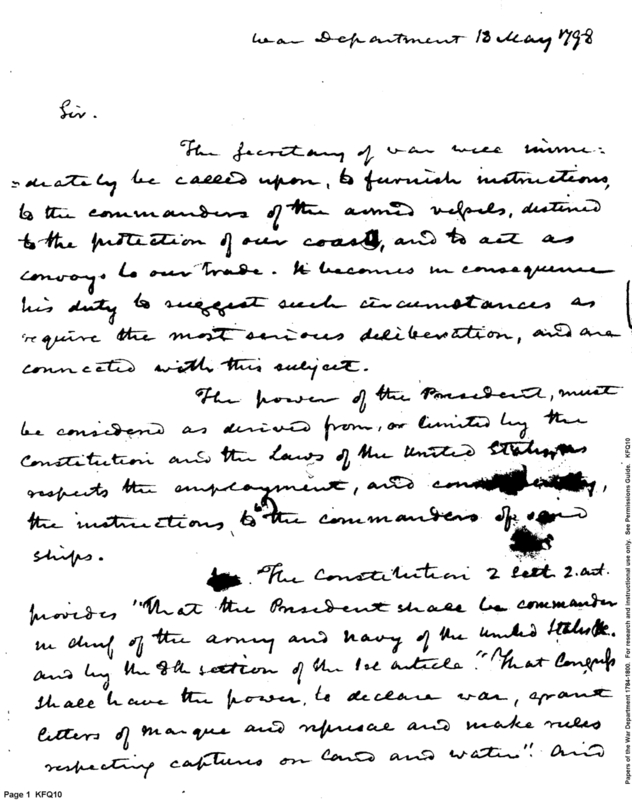 War Department 18 May 1798
Sir.
The Secretary of war will imme=
=diately be called upon, to furnish instructions,
to the commanders of the armed vessels, destined
to the protection of our coast, and to act as
convoys to our trade. It becomes in consequence
his duty to suggest such circumstances as
require the most serious deliberation, and are
connected with this subject.
The power of the President, must
be considered as derived from, or limited by the
Constitution and the Laws of the United States, as
respects the employment, and
the instructions, to the commanders of said
ships.
The Constitution 2 Sect. 2. art.
provides "That the President shall be commander
in chief of the army and navy of the United States &c.
and by the 8th section of the 1st article." That Congress
shall have the power, to declare war, grant
letters of marque and reprisal and make rules
respecting captures on land and water": and
Page 1 KFQ10
Papers of the War Department 1784-1800. For research and instructional use only. See Permissions Guide. KFQ10